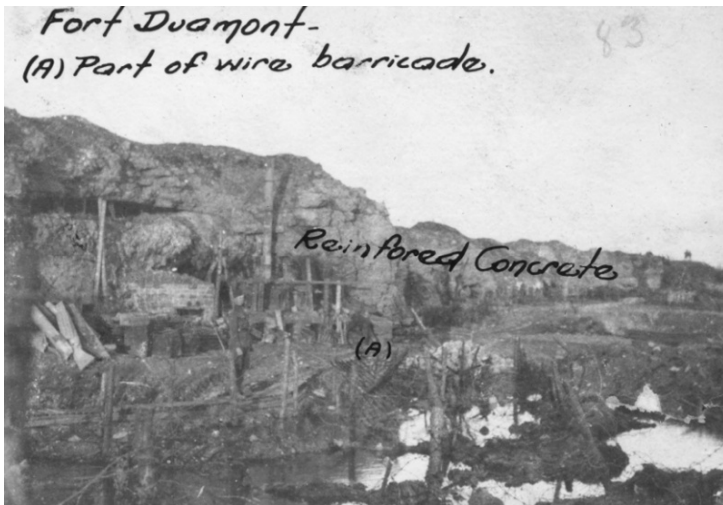 Fort Duamont-
83
(A) Part of wire barricade.
Reinfored Concrete
(A)